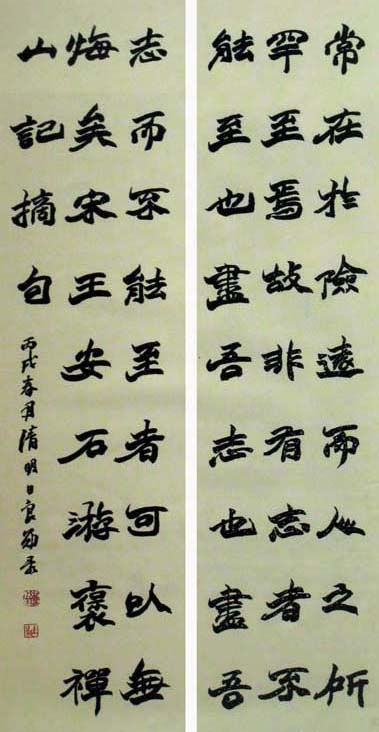 常在於險遠而人之所
罕至焉故非有志者不
能至也盡吾志也盡吾
志而不能至者可以無
悔矣宋王安石游褒禪
山記摘句
丙戌春月清明日